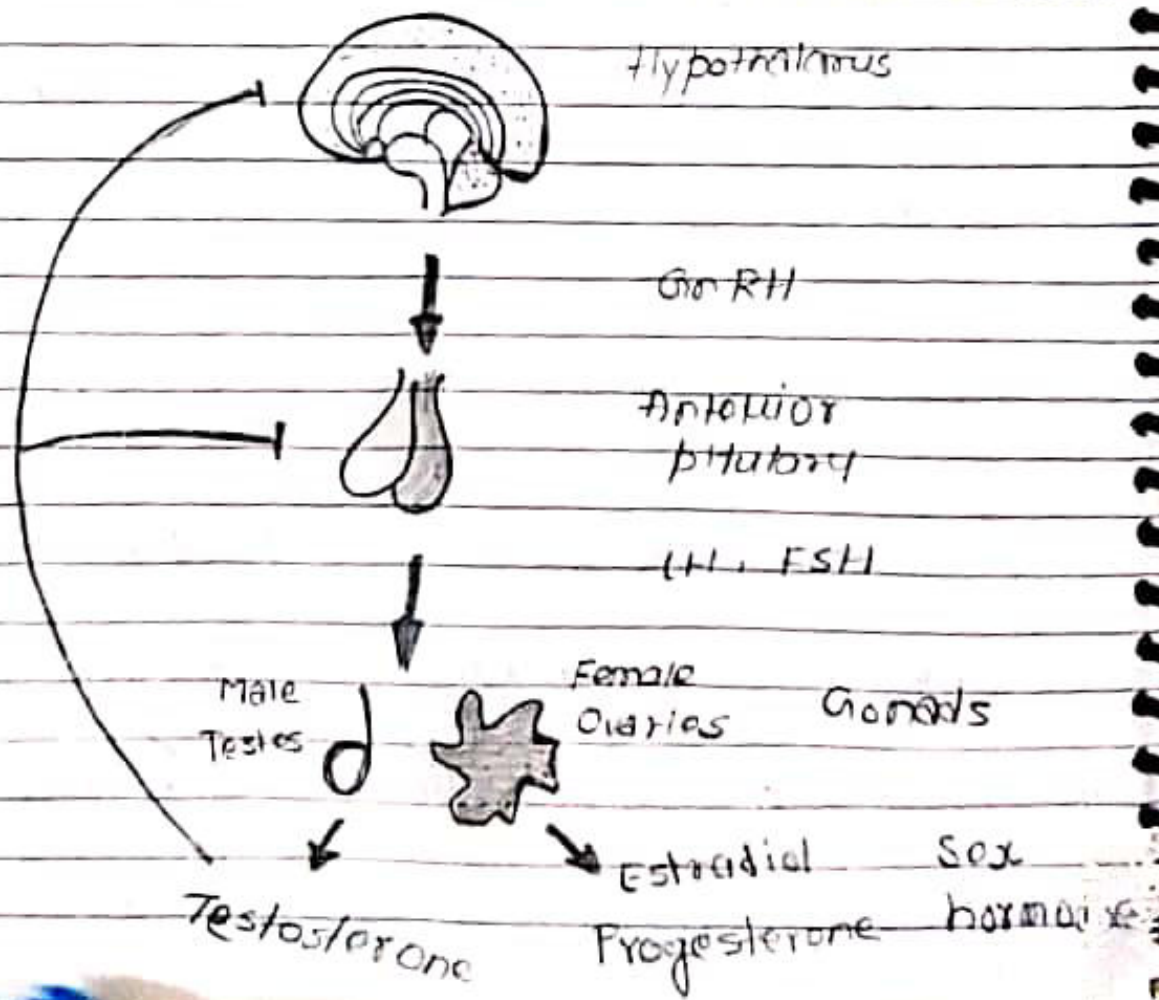 Hypothalamus
GnRH
Anterior
pitutary
LH, FSH
Male
Testes
Female
Ovaries
Gonads
Estradiol
Sex
Testosterone
Progesterone
hormone